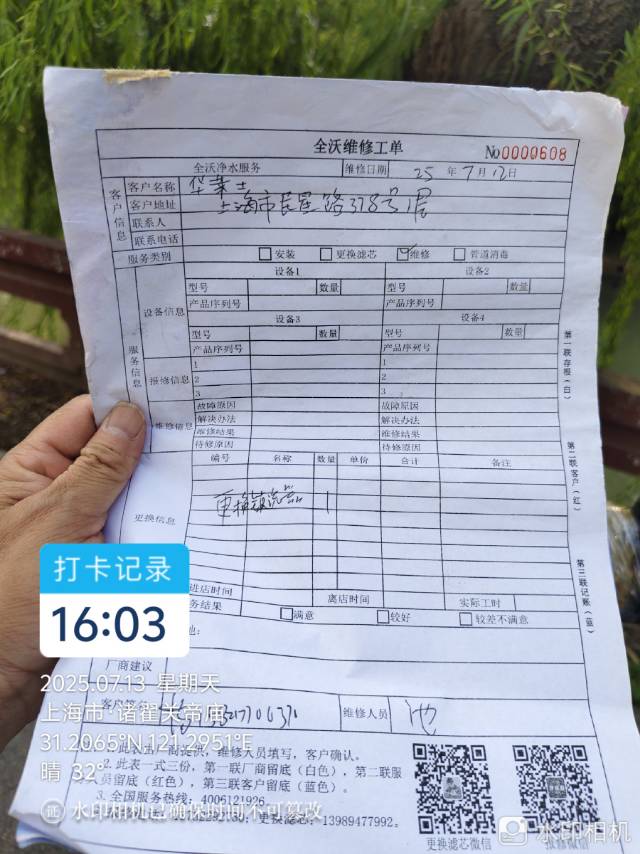 全沃维修工单
No0000608
全沃净水服务 维修日期 25 年 7 月 12 日
客户信息
客户名称 华莱士
客户地址 上海市 路378号1层
联系人
联系电话
服务类别 安装 更换滤芯 维修 管道消毒
服务信息
设备信息
设备1 设备2
型号 数量 型号 数量
产品序列号 产品序列号
设备3 设备4
型号 数量 型号 数量
产品序列号 产品序列号
报修信息
1 1
2 2
3 3
维修信息
故障原因 故障原因
解决办法 解决办法
维修结果 维修结果
待修原因 待修原因
更换信息
编号 名称 数量 单价 合计 备注
更换 1
进店时间 离店时间 实际工时
务结果 满意 较好 较差不满意
厂商建议
客户签 维修人员 池
第一联存根（白）
第二联客户（红）
第三联记账（蓝）
1. 此表 商提供，维修人员填写，客户确认。
2. 此表一式三份，第一联厂商留底（白色），第二联服
人员留底（红色），第三联客户留底（蓝色）。
3. 全国服务热线：4006121926
更换滤芯：13989477992.
更换滤芯微信
报修微信
打卡记录
16:03
2025.07.13 星期天
上海市·诸翟关帝庙
31.2065°N,121.2951°E
晴 32°
证 水印相机已确保时间不可篡改
水印相机